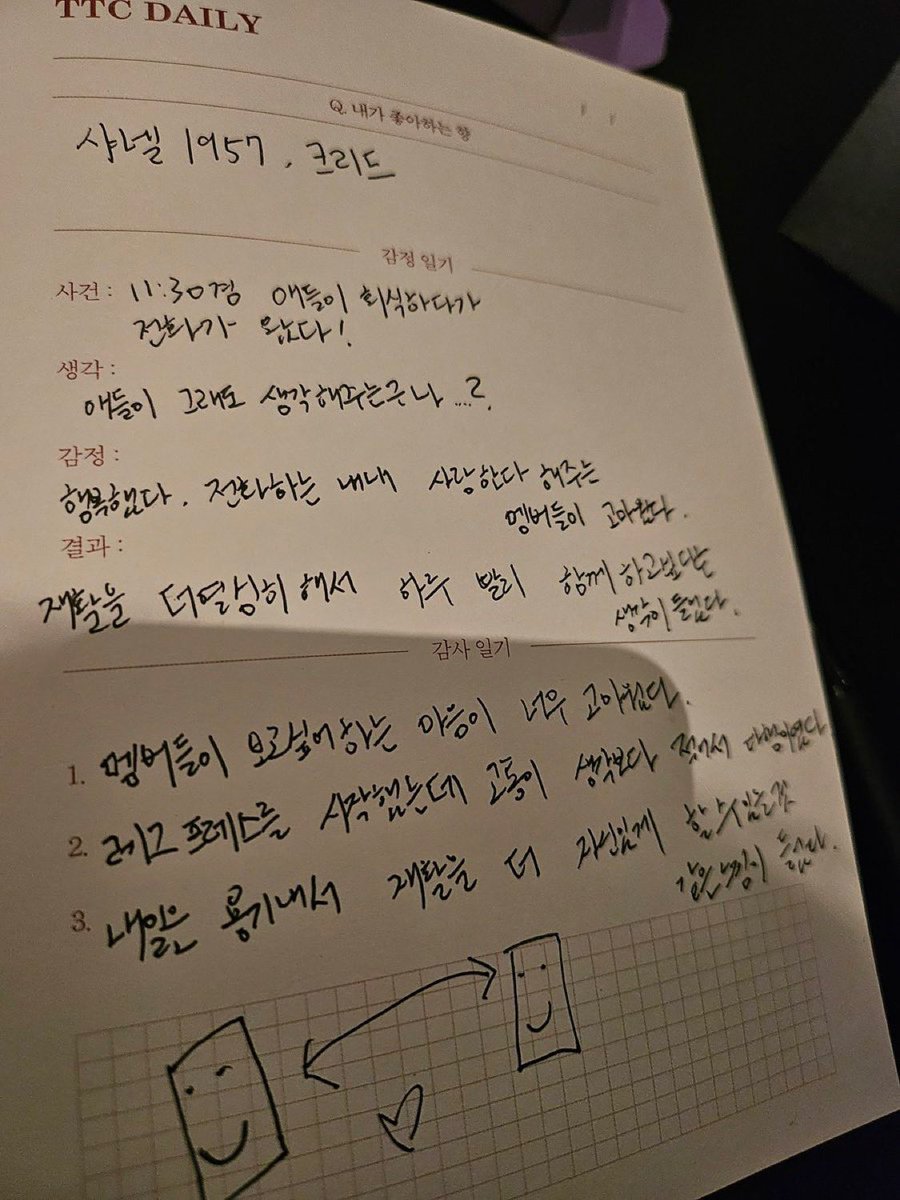 TTC DAILY
Q. 내가 좋아하는 향
샤넬 1957, 크리드
감정 일기
사건 : 11:30경 애들이 회식하다가
전화가 왔다!
생각 :
애들이 그래도 생각해주는구나...?
감정 :
행복했다. 전화하는 내내 사랑한다 해주는
멤버들이 고마웠다.
결과 :
재활을 더 열심히 해서 하루 빨리 함께 하고싶다는
생각이 들었다.
감사 일기
1. 멤버들이 보고싶어하는 마음이 너무 고마웠다.
2. 레그 프레스를 시작했는데 고통이 생각보다 적어서 다행이었다
3. 내일은 용기내서 재활을 더 자신있게 할 수 있는것
같은 느낌이 들었다.